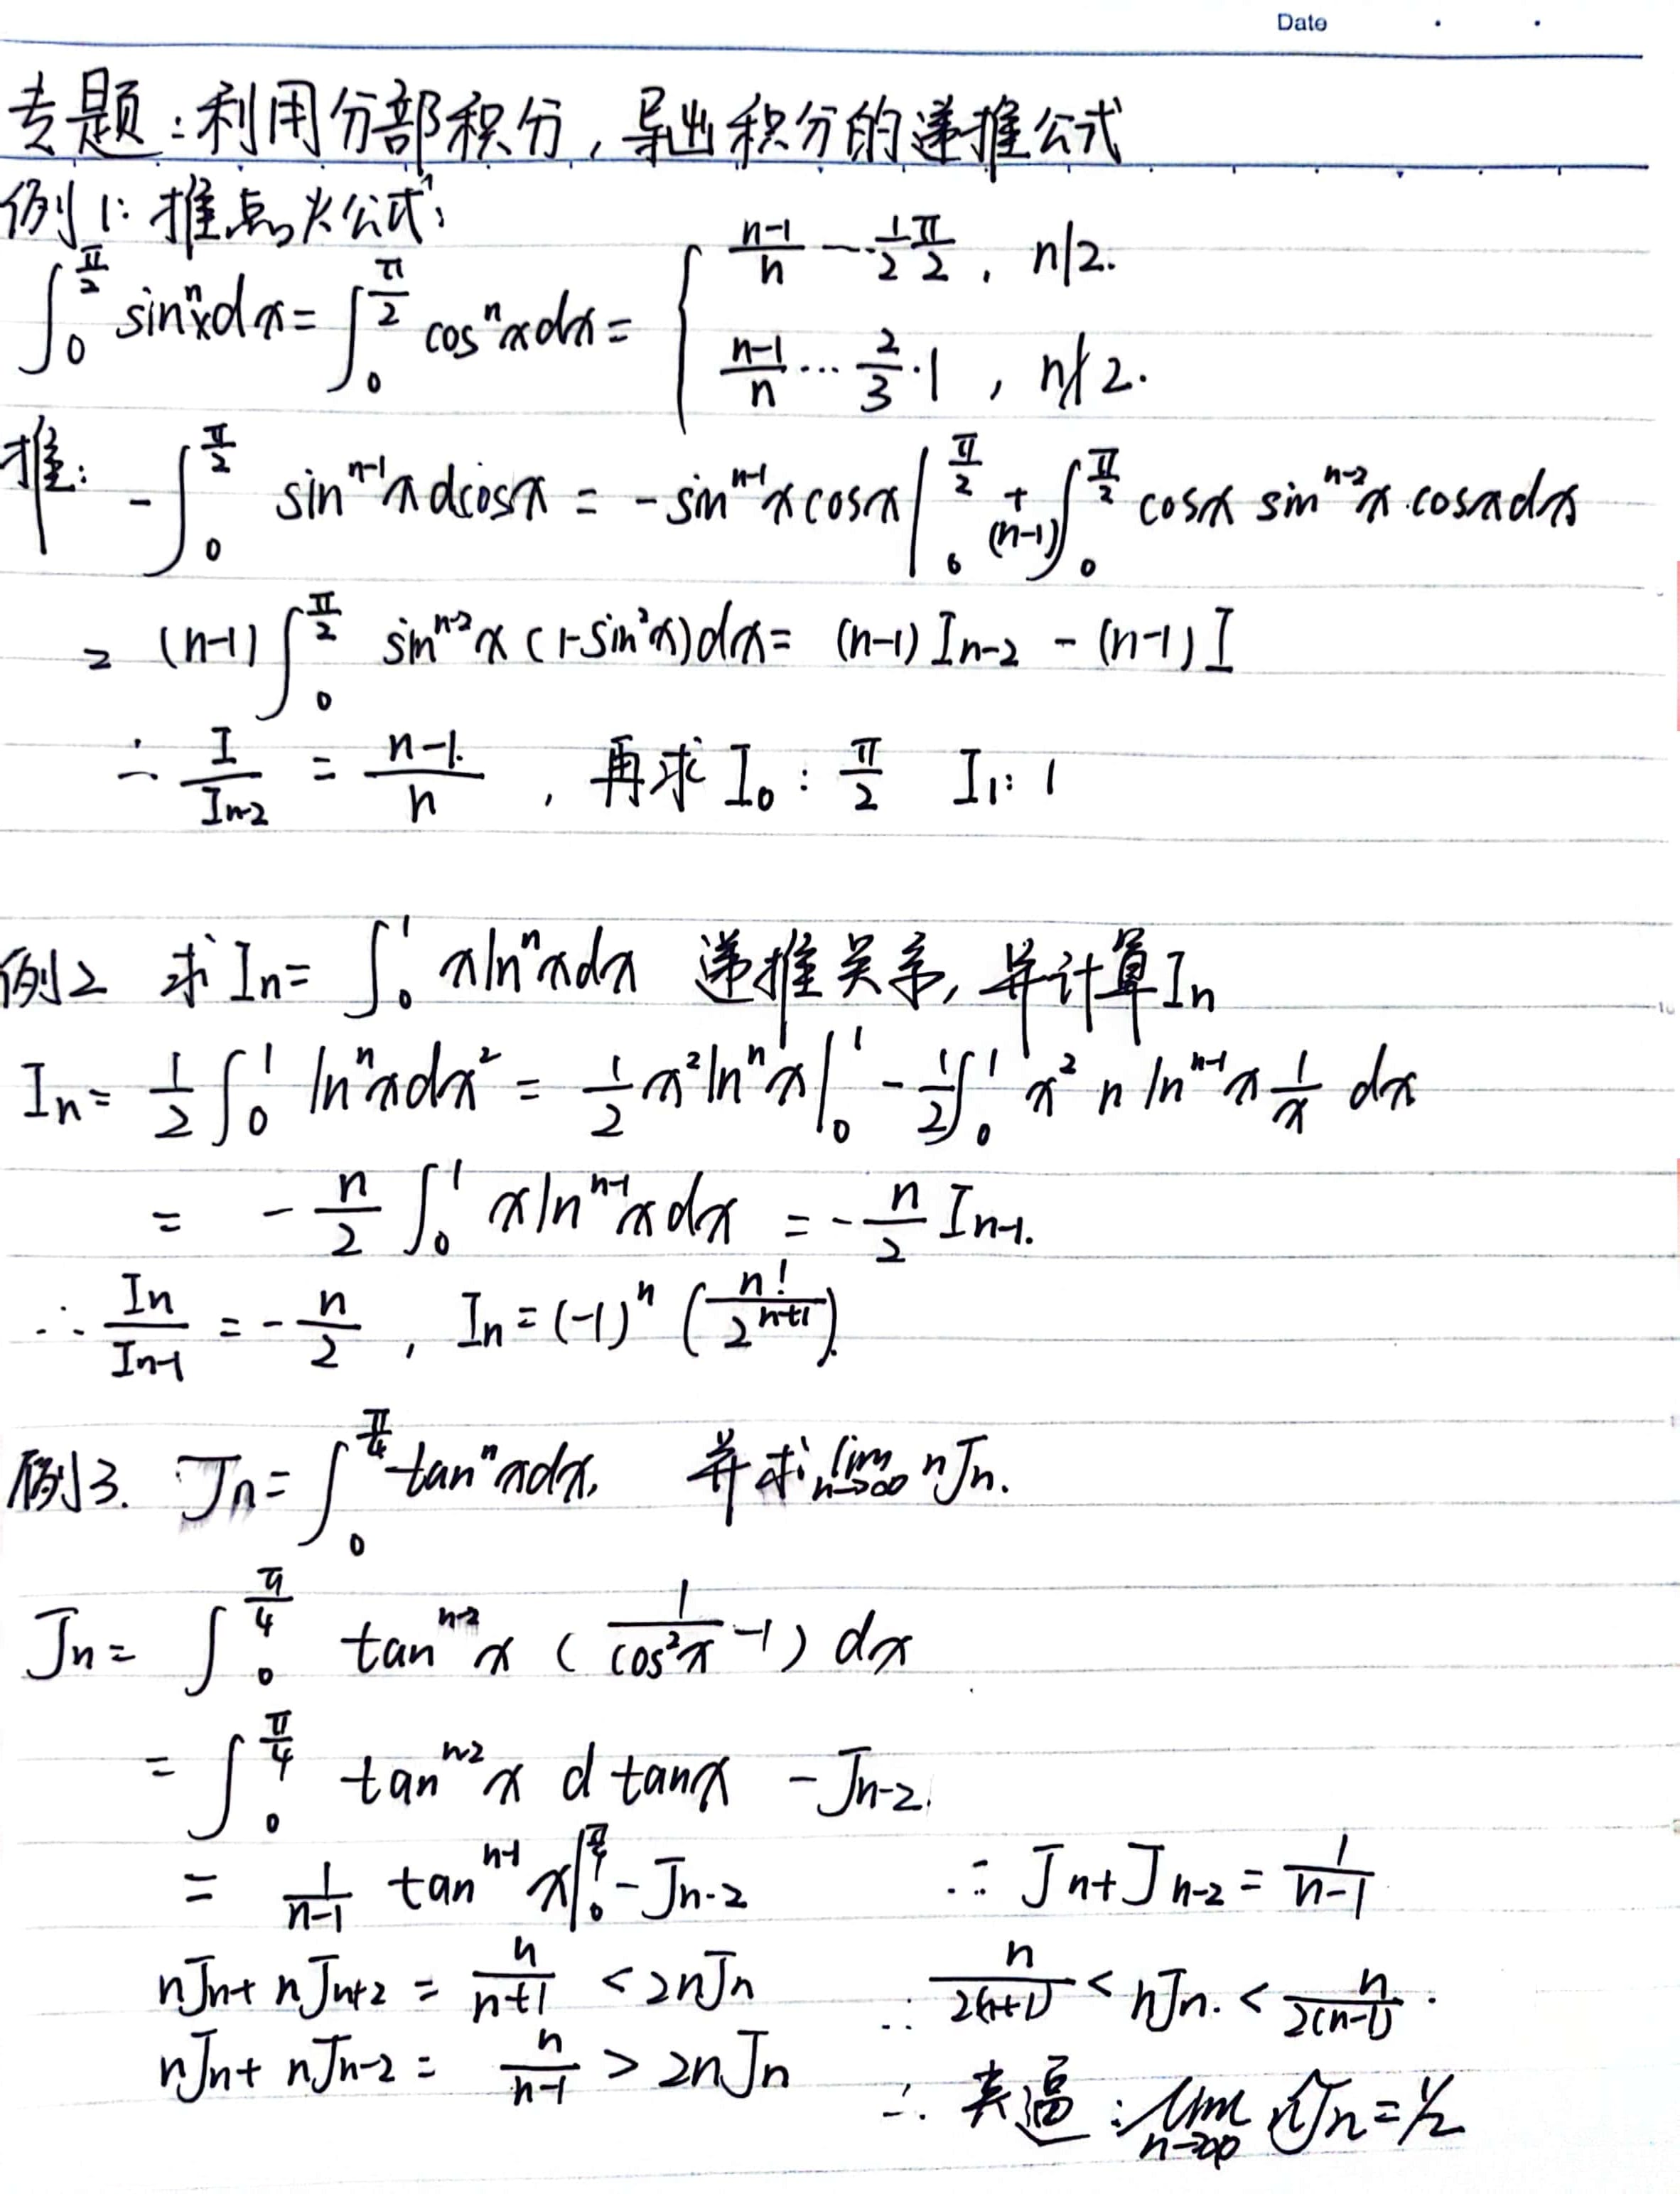 Date
专题：利用分部积分，导出积分的递推公式
例1：推点火公式：
∫_0^{π/2} sin^n x dx = ∫_0^{π/2} cos^n x dx = { (n-1)/n … 1/2 π/2 , n|2.
(n-1)/n … 2/3 · 1 , n∤2.
推： -∫_0^{π/2} sin^{n-1} x dcosx = -sin^{n-1} x cosx |_0^{π/2} + (n-1)∫_0^{π/2} cosx sin^{n-2} x · cosx dx
= (n-1) ∫_0^{π/2} sin^{n-2} x (1-sin² x) dx = (n-1) I_{n-2} - (n-1) I
∴ I/I_{n-2} = (n-1)/n , 再求 I_0 : π/2 I_1 : 1
例2 求 I_n = ∫_0^1 x ln^n x dx 递推关系, 并计算 I_n
I_n = 1/2 ∫_0^1 ln^n x dx² = 1/2 x² ln^n x |_0^1 - 1/2 ∫_0^1 x² n ln^{n-1} x 1/x dx
= - n/2 ∫_0^1 x ln^{n-1} x dx = - n/2 I_{n-1}.
∴ I_n/I_{n-1} = - n/2 , I_n = (-1)^n (n!/2^{n+1}).
例3. J_n = ∫_0^{π/4} tan^n x dx, 并求 lim_{n→∞} nJ_n.
J_n = ∫_0^{π/4} tan^{n-2} x (1/cos² x - 1) dx
= ∫_0^{π/4} tan^{n-2} x d tanx - J_{n-2}.
= 1/(n-1) tan^{n-1} x |_0^{π/4} - J_{n-2} ∴ J_n + J_{n-2} = 1/(n-1)
nJ_n + nJ_{n+2} = n/(n+1) < 2nJ_n ∴ n/(2(n+1)) < nJ_n. < n/(2(n-1)) .
nJ_n + nJ_{n-2} = n/(n-1) > 2nJ_n ∴ 夹逼 : lim_{n→∞} nJ_n = 1/2